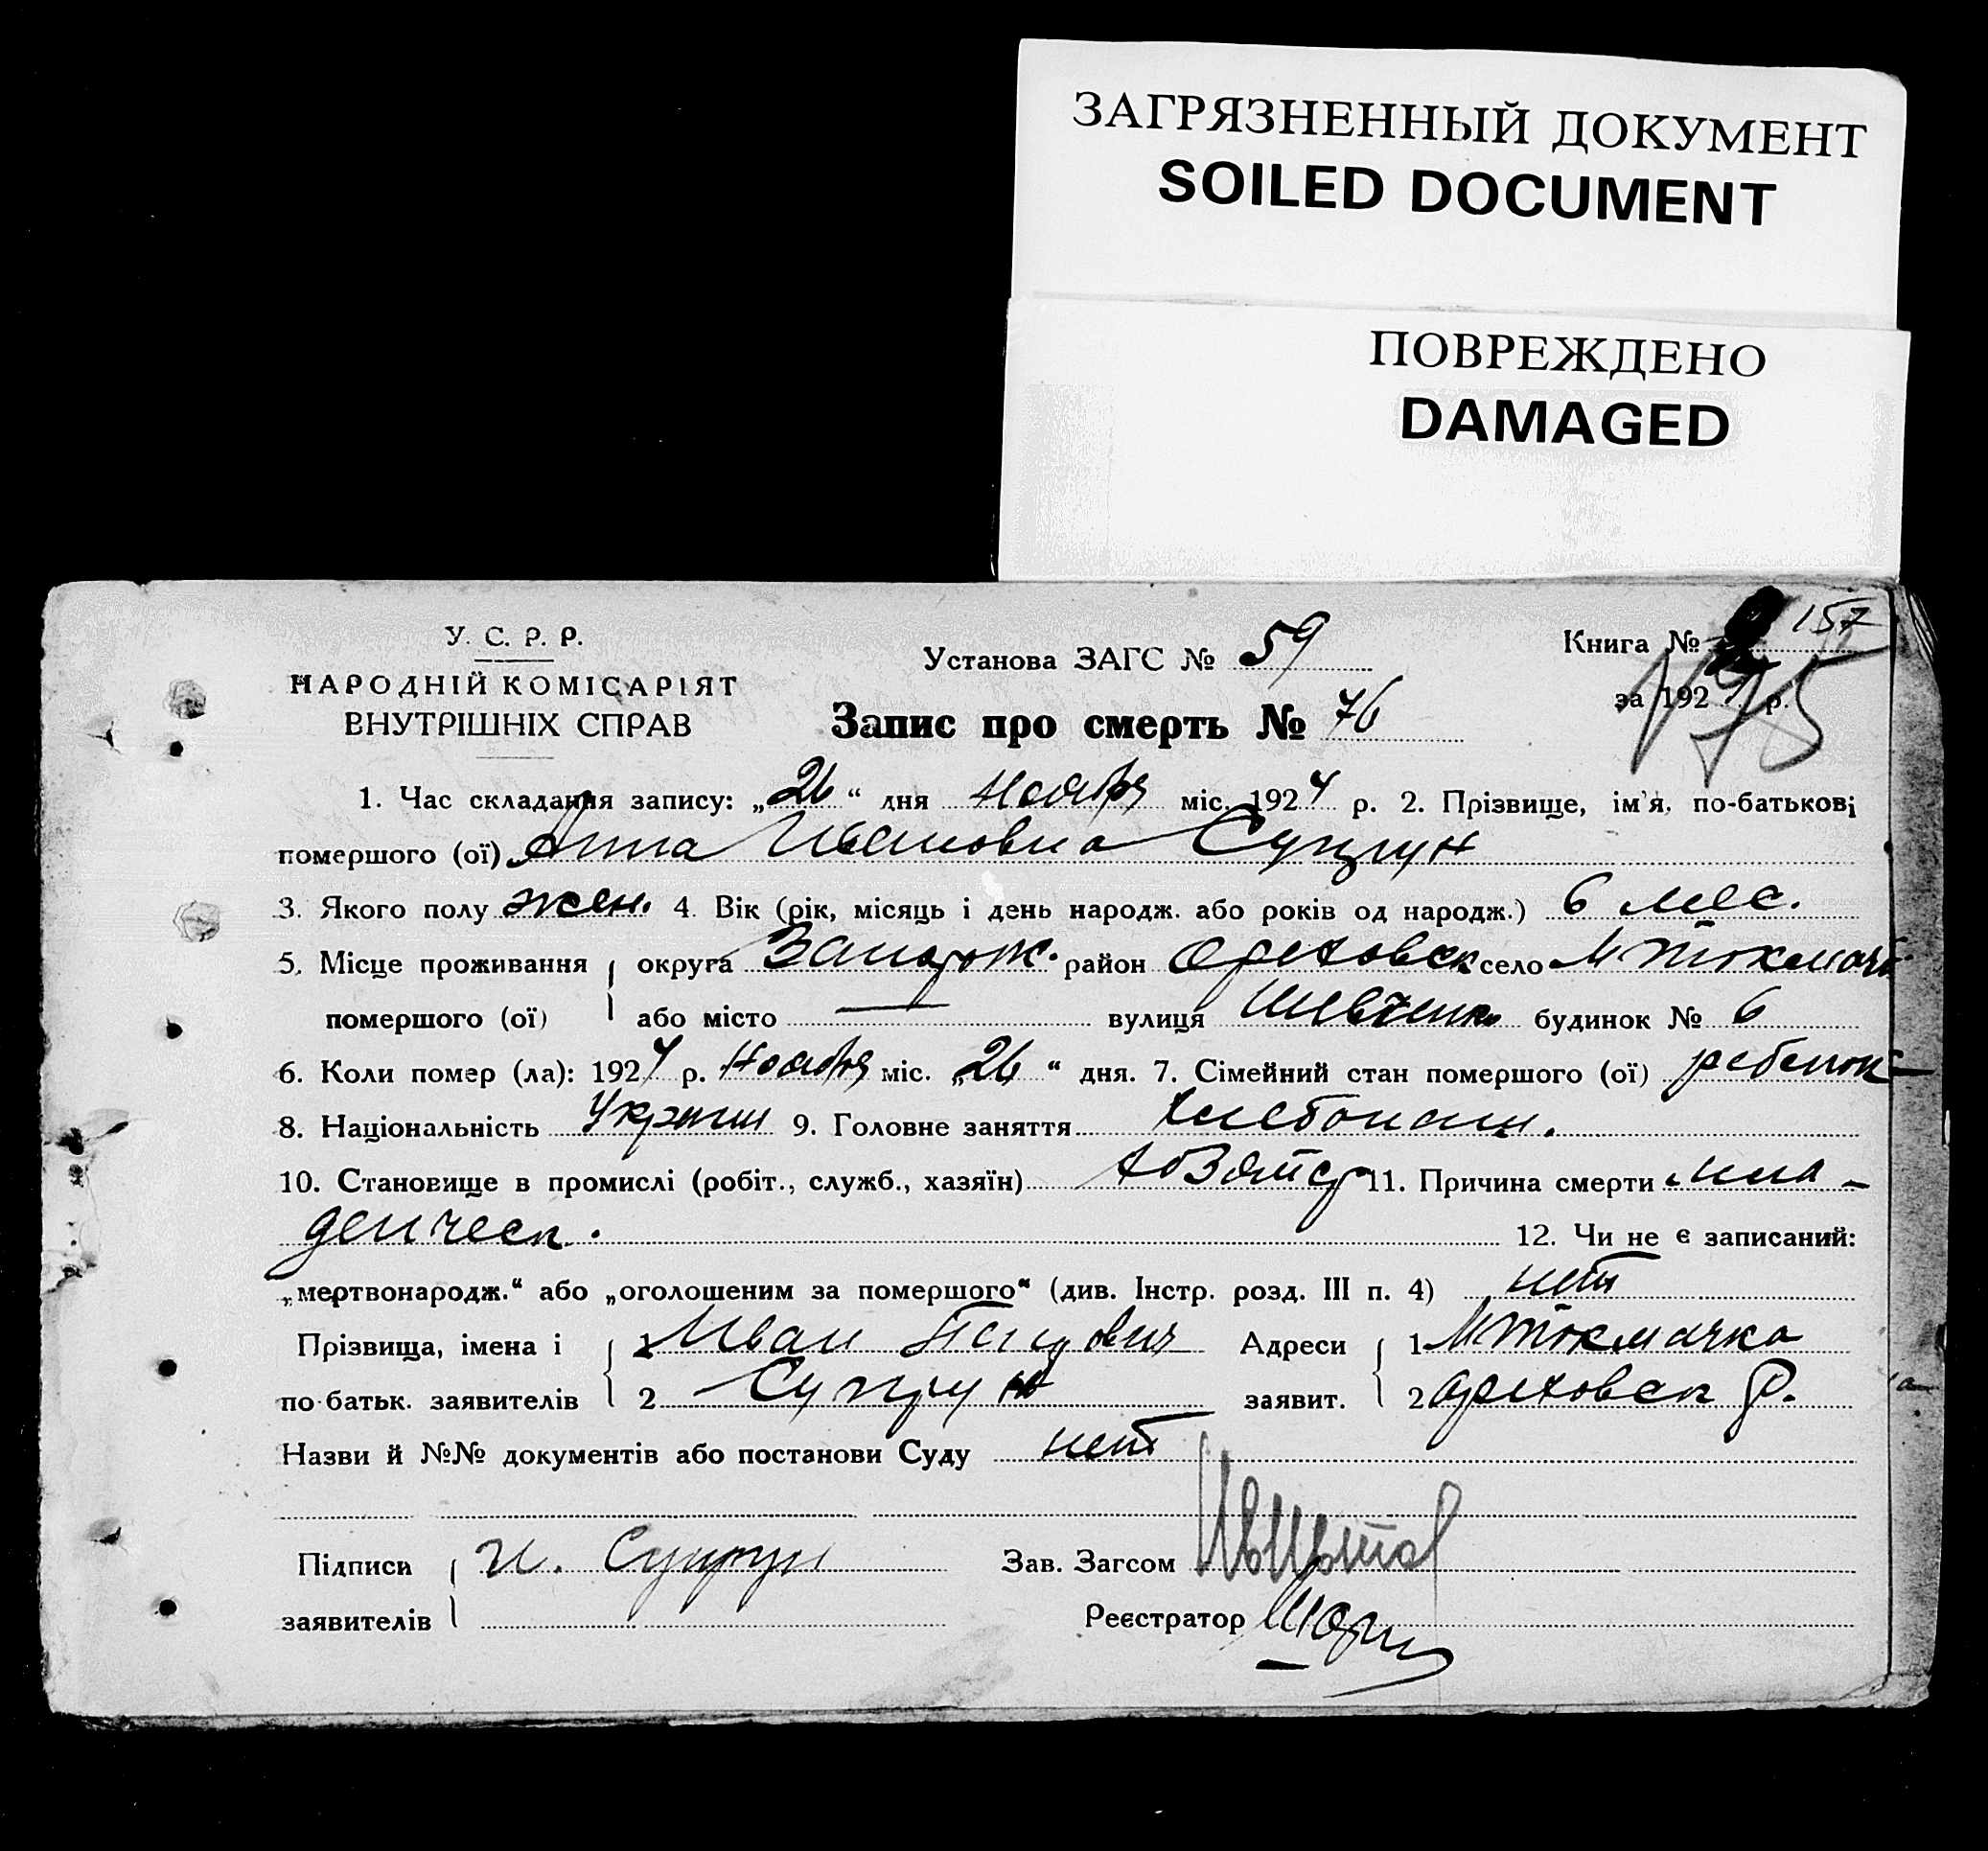 ЗАГРЯЗНЕННЫЙ ДОКУМЕНТ
SOILED DOCUMENT
ПОВРЕЖДЕНО
DAMAGED
У. С. Р. Р.
НАРОДНІЙ КОМІСАРІЯТ
ВНУТРІШНІХ СПРАВ
Установа ЗАГС № 59
Запис про смерть № 76
Книга № 157
за 192 р.
175
1. Час складання запису: „26“ дня ноября міс. 1924 р. 2. Прізвище, ім'я, по-батькові
помершого (ої) Анна Ивановна Супрун
3. Якого полу жен. 4. Вік (рік, місяць і день народж. або років од народж.) 6 мес.
5. Місце проживання округа Запорож. район Ореховск село М Токмачк
помершого (ої) або місто — вулиця Шевченко будинок № 6
6. Коли помер (ла): 1924 р. Ноября міс. „26“ дня. 7. Сімейний стан помершого (ої) ребенок
8. Національність Украин 9. Головне заняття хлебопаш.
10. Становище в промислі (робіт., служб., хазяїн) 11. Причина смерти мла-
денческ.
12. Чи не є записаний:
„мертвонародж.“ або „оголошеним за помершого“ (див. Інстр. розд. III п. 4) нет
Прізвища, імена і 1 Иван Адреси 1 М Токмачка
по-батьк. заявителів 2 Супрун заявит. 2 Ореховск р.
Назви й №№ документів або постанови Суду нет
Підписи И. Супрун Зав. Загсом
заявителів Реєстратор